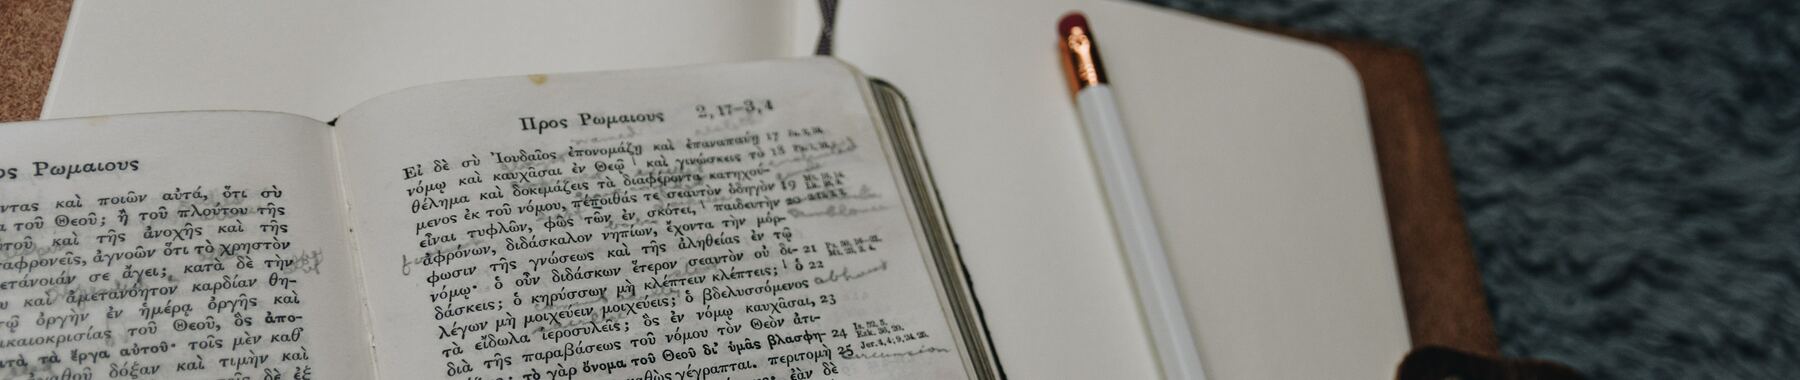 ος Ρωμαιους
ντας καὶ ποιῶν αὐτά, ὅτι σὺ
α τοῦ Θεοῦ; ἢ τοῦ πλούτου τῆς
τοῦ καὶ τῆς ἀνοχῆς καὶ τῆς
ταφρονεῖς, ἀγνοῶν ὅτι τὸ χρηστὸν
ετάνοιάν σε ἄγει; κατὰ δὲ τὴν
υ καὶ ἀμετανόητον καρδίαν θη-
τῷ ὀργὴν ἐν ἡμέρᾳ ὀργῆς καὶ
ικαιοκρισίας τοῦ Θεοῦ, ὃς ἀπο-
ατὰ τὰ ἔργα αὐτοῦ· τοῖς μὲν καθ’
ἀγαθοῦ δόξαν καὶ τιμὴν καὶ
δὲ ἐξ
Προς Ρωμαιους 2,17–3,4
Εἰ δὲ σὺ Ἰουδαῖος ἐπονομάζῃ καὶ ἐπαναπαύῃ 17
νόμῳ καὶ καυχᾶσαι ἐν Θεῷ | καὶ γινώσκεις τὸ 18
θέλημα καὶ δοκιμάζεις τὰ διαφέροντα κατηχού-
μενος ἐκ τοῦ νόμου, πέποιθάς τε σεαυτὸν ὁδηγὸν 19
εἶναι τυφλῶν, φῶς τῶν ἐν σκότει, | παιδευτὴν 20
ἀφρόνων, διδάσκαλον νηπίων, ἔχοντα τὴν μόρ-
φωσιν τῆς γνώσεως καὶ τῆς ἀληθείας ἐν τῷ
νόμῳ· ὁ οὖν διδάσκων ἕτερον σεαυτὸν οὐ δι- 21
δάσκεις; ὁ κηρύσσων μὴ κλέπτειν κλέπτεις; | ὁ 22
λέγων μὴ μοιχεύειν μοιχεύεις; ὁ βδελυσσόμενος abhorrent
τὰ εἴδωλα ἱεροσυλεῖς; ὃς ἐν νόμῳ καυχᾶσαι, 23
διὰ τῆς παραβάσεως τοῦ νόμου τὸν Θεὸν ἀτι-
τὸ γὰρ ὄνομα τοῦ Θεοῦ δι’ ὑμᾶς βλασφη- 24
καθὼς γέγραπται. περιτομὴ 25
ἐὰν δὲ